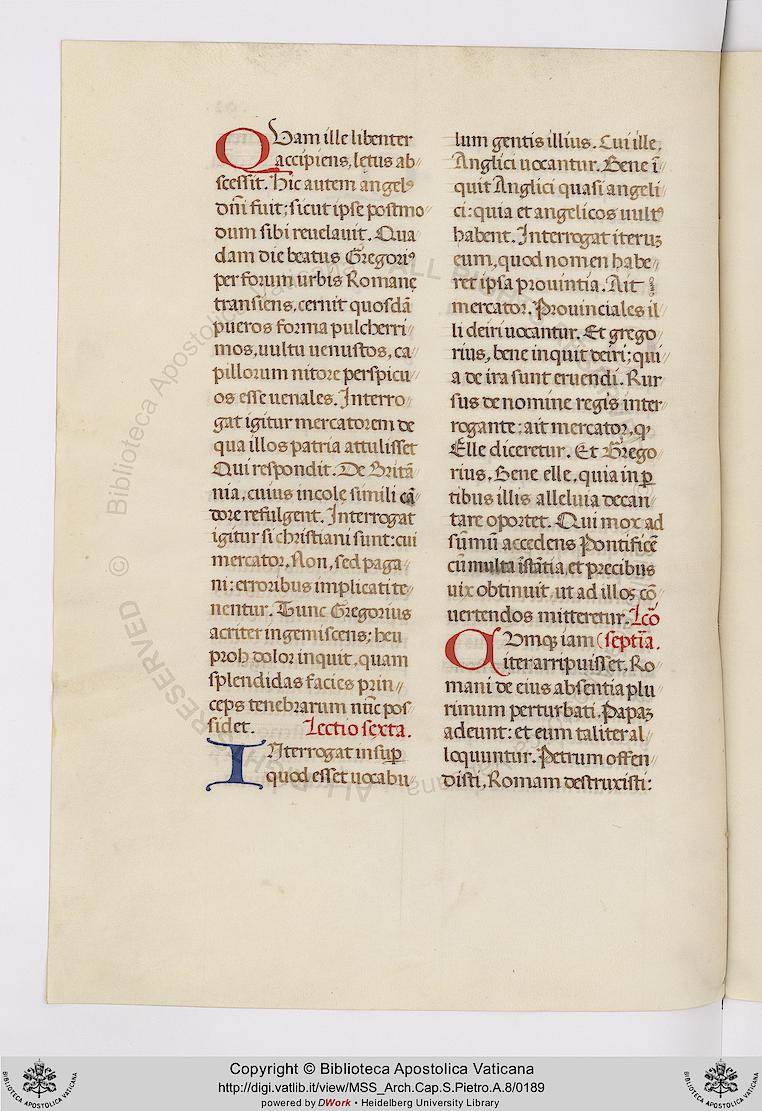 Quam ille libenter
accipiens, letus ab⸗
scessit. Hic autem angelꝰ
dñi fuit; sicut ipse postmo⸗
dum sibi reuelauit. Qua⸗
dam die beatus Gregoriꝰ
per forum urbis Romanę
transiens, cernit quosdã
pueros forma pulcherri⸗
mos, uultu uenustos, ca⸗
pillorum nitore perspicu⸗
os esse uenales. Interro⸗
gat igitur mercatorem de
qua illos patria attulisset
Qui respondit. De Britã⸗
nia, cuius incolę simili cã⸗
dore refulgent. Interrogat
igitur si christiani sunt: cui
mercator. Non, sed paga⸗
ni: erroribus implicati te⸗
nentur. Tunc Gregorius
acriter ingemiscens; heu
proh dolor inquit, quam
splendidas facies prin⸗
ceps tenebrarum nũc pos⸗
sidet. Lectio sexta.
INterrogat insuꝑ
quod esset uocabu⸗
lum gentis illius. Cui ille,
Anglici uocantur. Bene ĩ⸗
quit Anglici quasi angeli⸗
ci: quia et angelicos uultꝰ
habent. Interrogat iteruꝫ
eum, quod nomen habe⸗
ret ipsa prouintia. Ait
mercator. Prouinciales il⸗
li deiri uocantur. Et grego⸗
rius, bene inquit deiri; qui⸗
a de ira sunt eruendi. Rur⸗
sus de nomine regis inter⸗
rogante; ait mercator, ꝙ
Elle diceretur. Et Grego⸗
rius, Bene elle, quia in ꝑ⸗
tibus illis alleluia decan⸗
tare oportet. Qui mox ad
sũmũ accedens Pontificẽ
cũ multa istãtia et precibus
uix obtinuit, ut ad illoꝝ cõ⸗
uertendos mitteretur. Lcõ
CVmqꝫ iam septĩa.
iter arripuisset, Ro⸗
mani de eius absentia plu⸗
rimum perturbati, Papaꝫ
adeunt: et eum taliter al⸗
loquuntur. Petrum offen⸗
disti, Romam destruxisti:
© Biblioteca Apostolica Vaticana - ALL RIGHTS RESERVED
Copyright © Biblioteca Apostolica Vaticana
http://digi.vatlib.it/view/MSS_Arch.Cap.S.Pietro.A.8/0189
powered by DWork • Heidelberg University Library
BIBLIOTECA APOSTOLICA VATICANA
BIBLIOTECA APOSTOLICA VATICANA